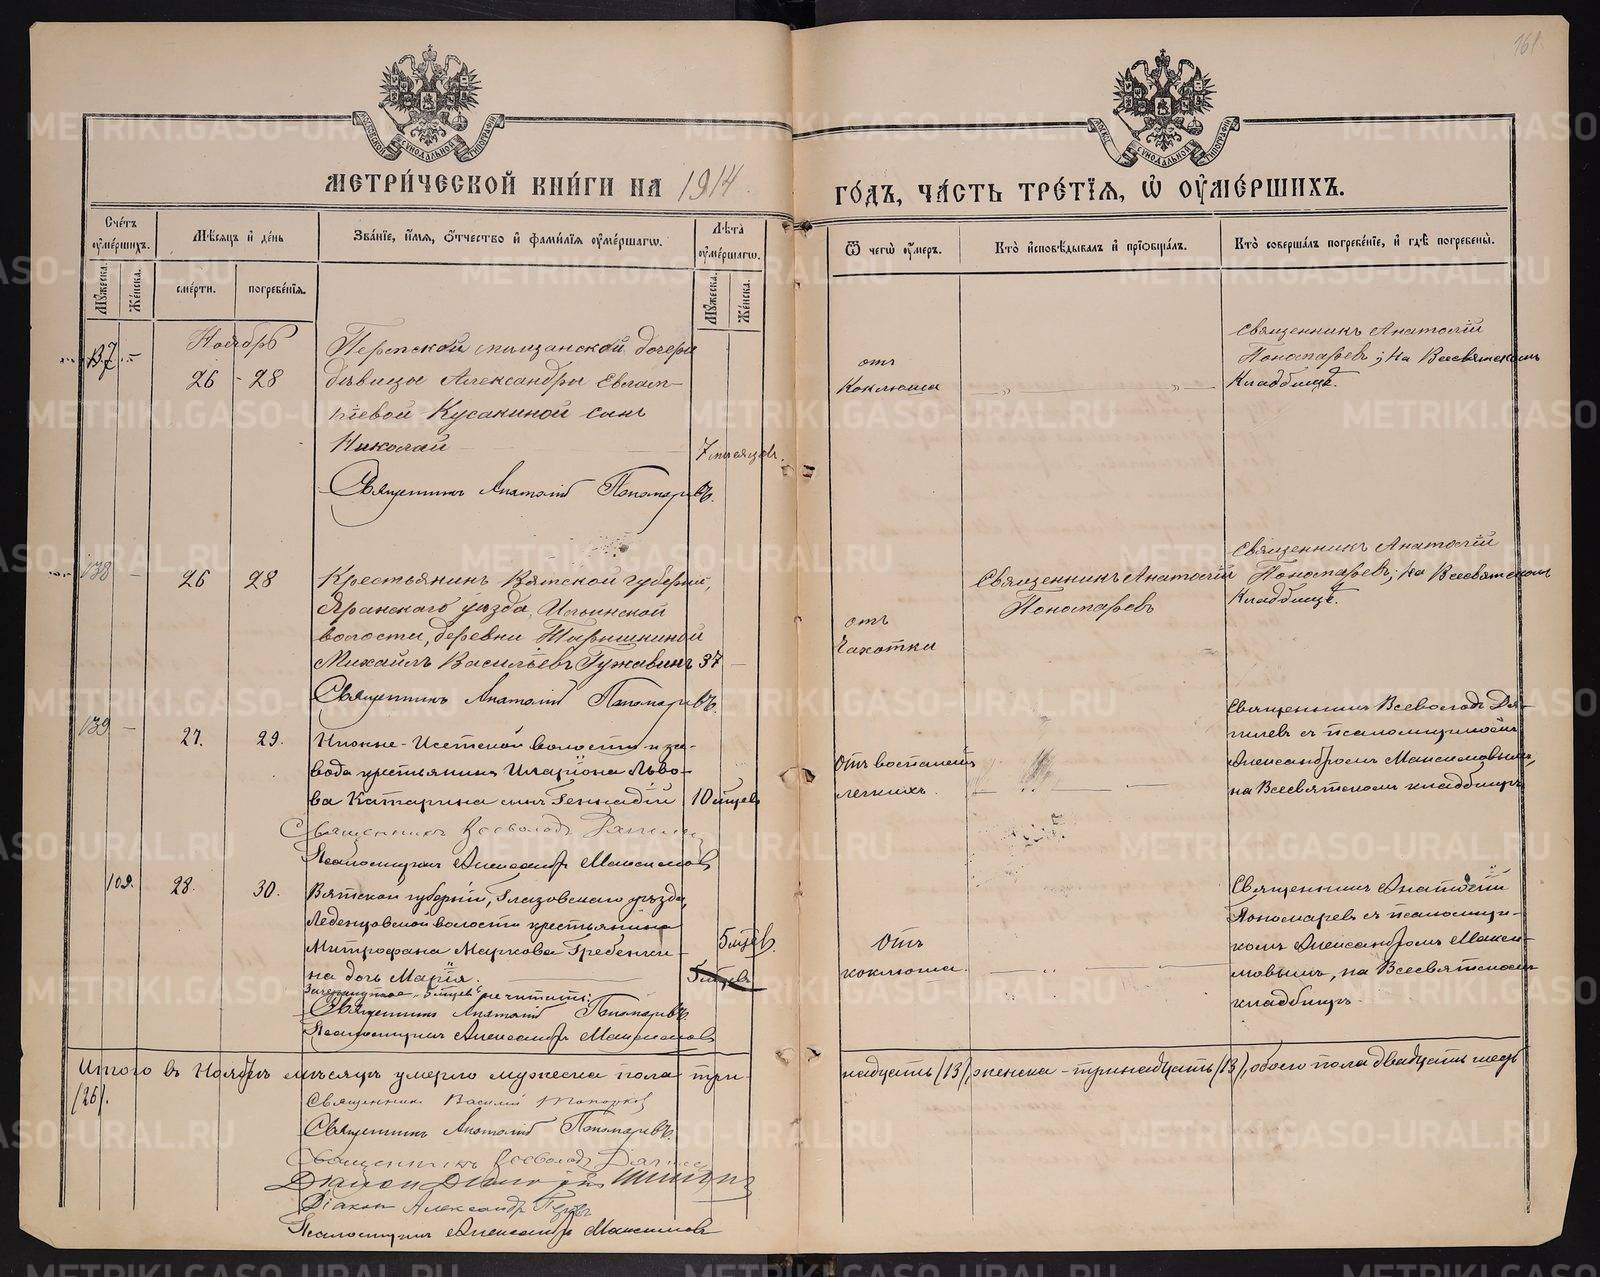 161.
МЕТРИ́ЧЕСКОЙ КНИ́ГИ НА 1914
ГО́ДЪ, ЧА́СТЬ ТРЕ́ТІѦ, Ѡ ОУМЕ́РШИХЪ.
Сче́тъ оуме́ршихъ.
Мꙋ́жеска.
Же́нска.
Мѣ́сѧцъ и де́нь
сме́рти.
погребе́нїѧ.
Зва́нїе, и́мѧ, о́тчество и фами́лїѧ оуме́ршагѡ.
Лѣ́та оуме́ршагѡ.
Мꙋ́жеска.
Же́нска.
Ѿ чегѡ̀ оу́меръ.
Кто̀ исповѣ́дывалъ и прїѡбща́лъ.
Кто̀ соверша́лъ погребе́нїе, и гдѣ̀ погребены̀.
Ноябрь
137 -
26 - 28
дѣвицы Александры Евлам-
піевой Кусакиной сынъ
Николай
7 мѣсяцев.
Священникъ Анатолій Пономаревъ.
отъ
Коклюша
Священникъ Анатолій
Пономаревъ; на Всесвятском
Кладбищѣ.
138 -
26 28
Крестьянинъ Вятской губерніи,
Яранскаго уѣзда, Ильинской
волости, деревни
Михаилъ Васильевъ Гужавинъ 37 -
Священникъ Анатолій Пономаревъ.
отъ
Чахотки
Священникъ Анатолій
Пономаревъ
Священникъ Анатолій
Пономаревъ; на Всесвятском
Кладбищѣ.
139 -
27. 29.
Нижне-Исетской волости и за-
вода крестьянина Иларіона Льво-
ва Катарина сынъ Геннадій
10 мцев
Священникъ Всеволодъ
Псаломщикъ Александръ Максимовъ
Отъ воспален.
легкихъ.
Священникъ Всеволодъ
с псаломщикомъ
Александромъ Максимовымъ,
на Всесвятскомъ кладбищѣ
109.
28. 30.
Вятской губерніи, Глазовскаго уѣзда,
Леденцовской волости крестьянина
Митрофана Маркова Гребенки-
на дочь Марія.
5 мцев.
5 мцев
Зачеркнутое "5 мцев" не читать.
Священникъ Анатолій Пономаревъ
Псаломщикъ Александръ Максимовъ
Отъ
коклюша.
Священникъ Анатолій
Пономаревъ с псаломщи-
комъ Александромъ Макси-
мовымъ, на Всесвятскомъ
кладбищѣ.
Итого въ Ноябрѣ мѣсяцѣ умерло мужеска пола три-
надцать (13), женска - тринадцать (13), обоего пола двадцать шесть
(26).
Священник Василій
Священникъ Анатолій Пономаревъ.
Священникъ Всеволодъ
Діаконъ Александръ
Псаломщикъ Александръ Максимовъ
METRIKI.GASO-URAL.RU